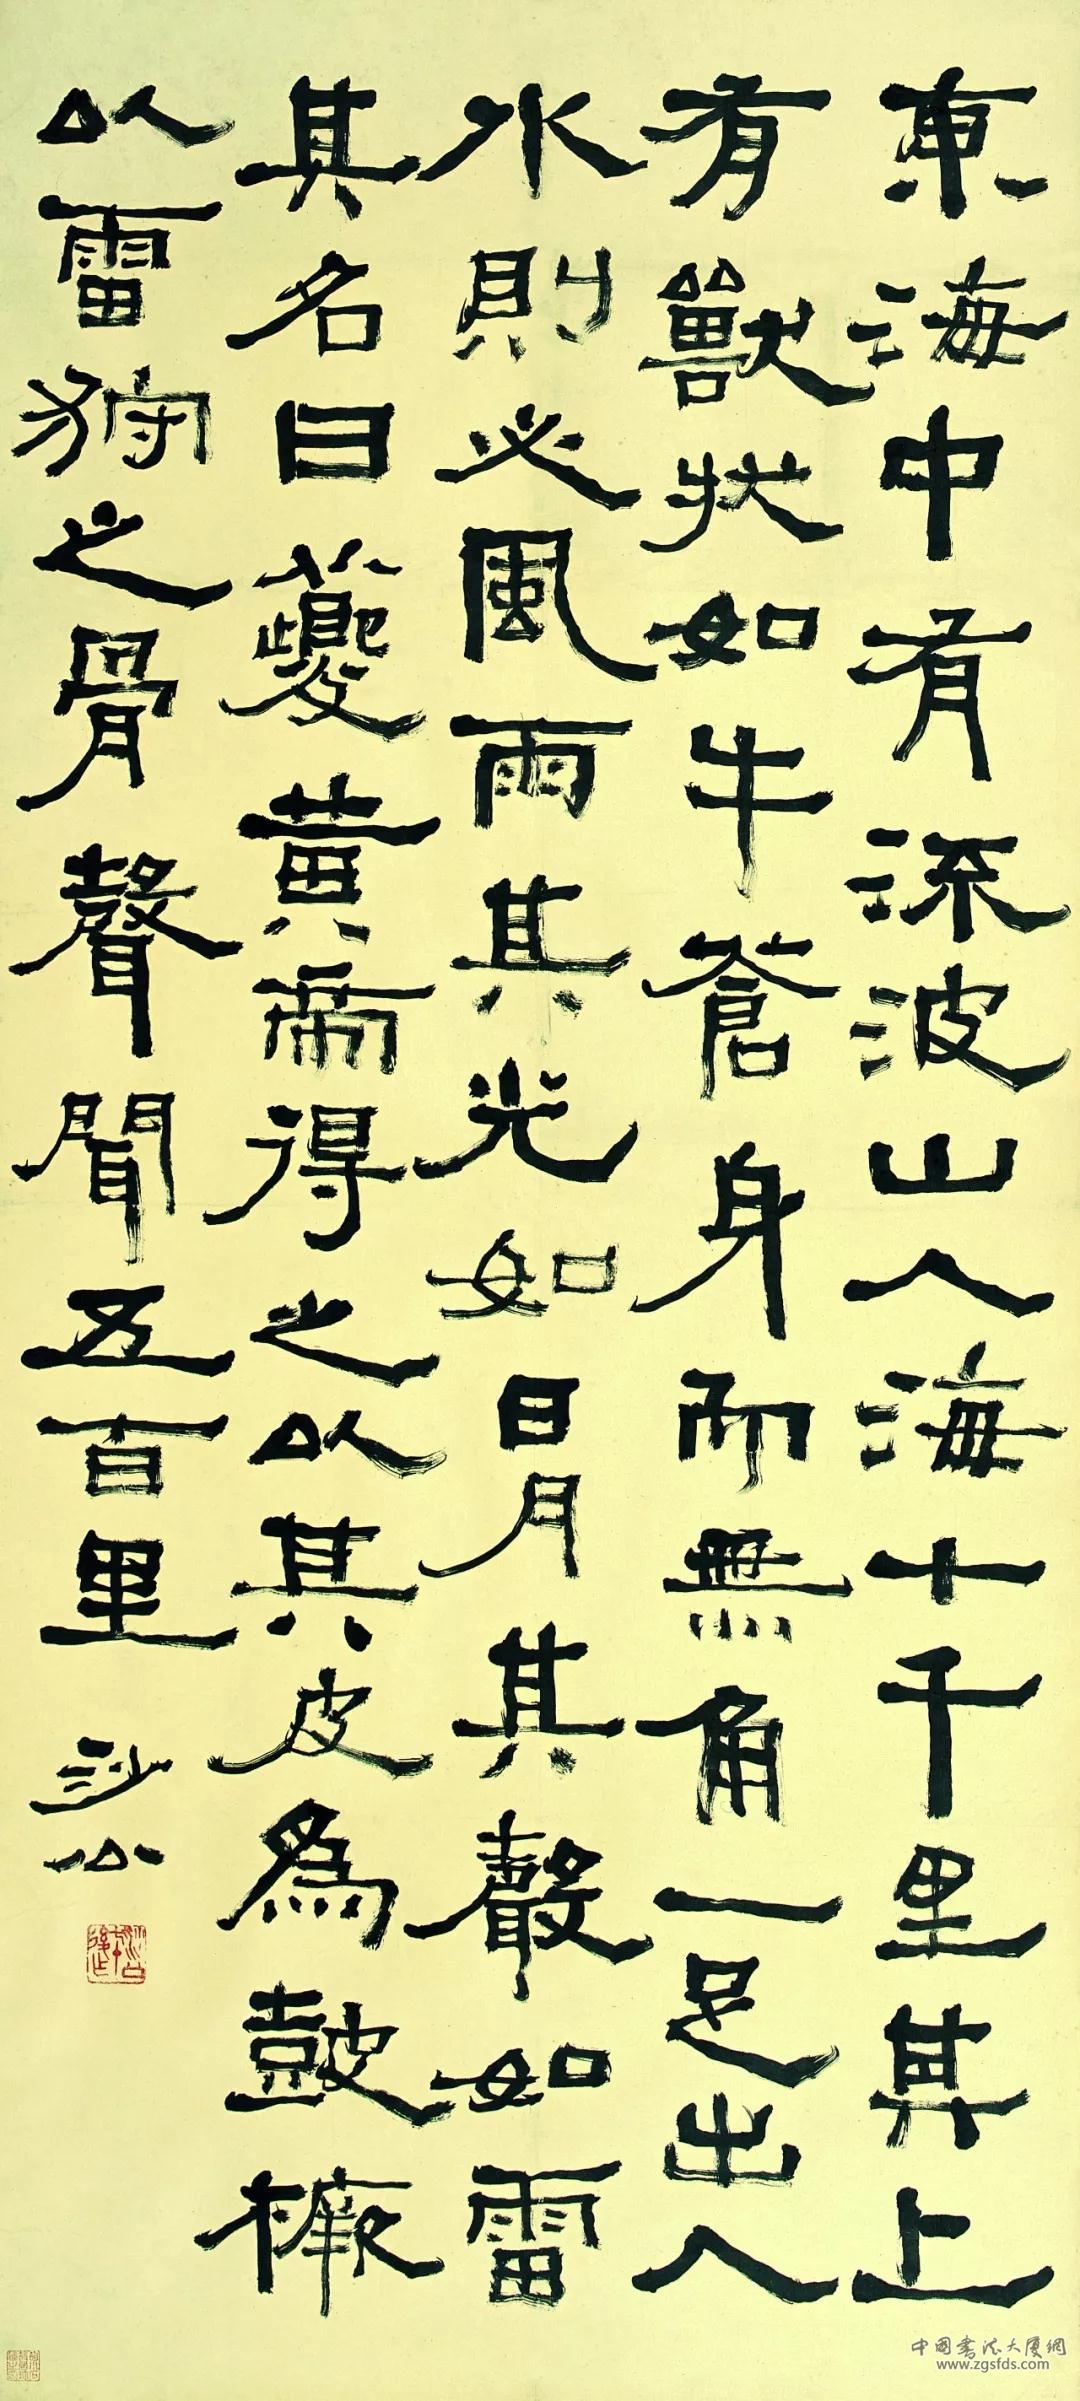 東海中有流波山入海七千里其上
有獸狀如牛蒼身而無角一足出入
水則必風雨其光如日月其聲如雷
其名曰夔黃帝得之以其皮為皷橛
以雷狩之骨聲聞五百里 沙公
中國書法大廈網
www.zgsfds.com